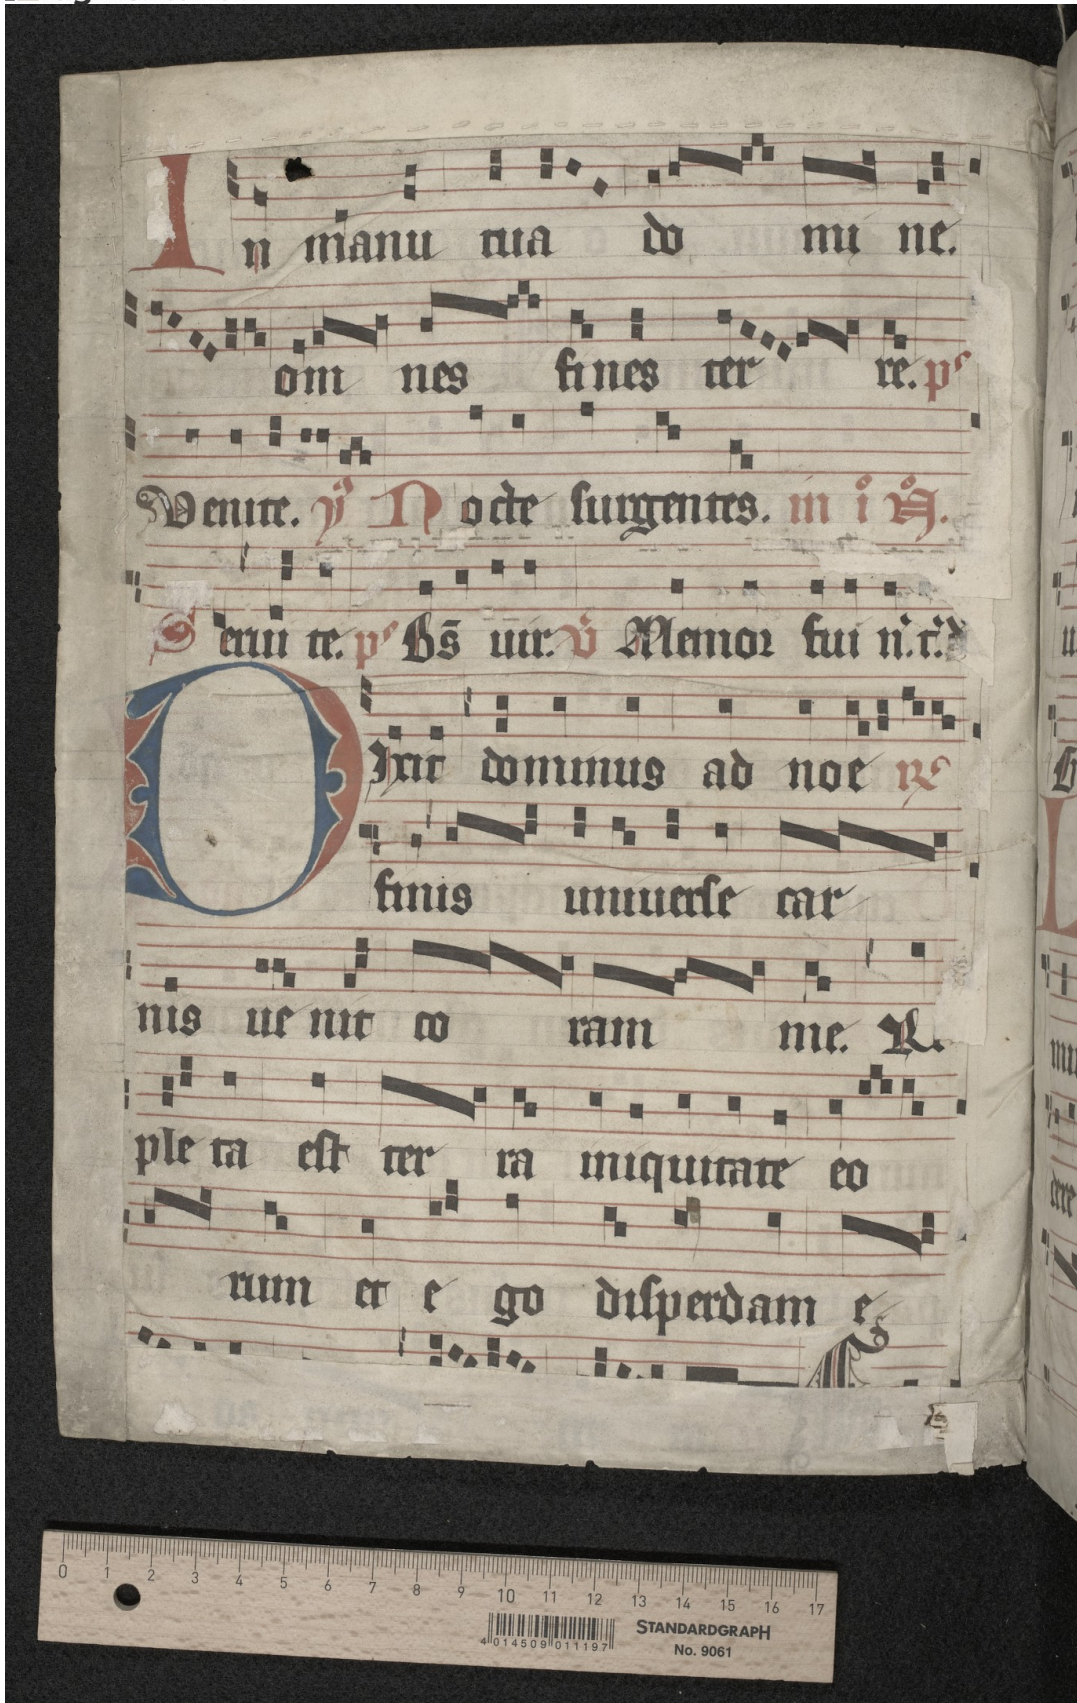 In manu tua do mi ne.
om nes fines ter re. ps
Venite. ỹ Nocte surgentes. in i
Serui te. ps Bs̄ uir. Memor fui
Dixit dominus ad noe
finis uniuerse car
nis ue nit co ram me. Re
ple ta est ter ra iniquitate eo
rum et e go disperdam e
0 1 2 3 4 5 6 7 8 9 10 11 12 13 14 15 16 17
4 014509 011197
STANDARDGRAPH
No. 9061